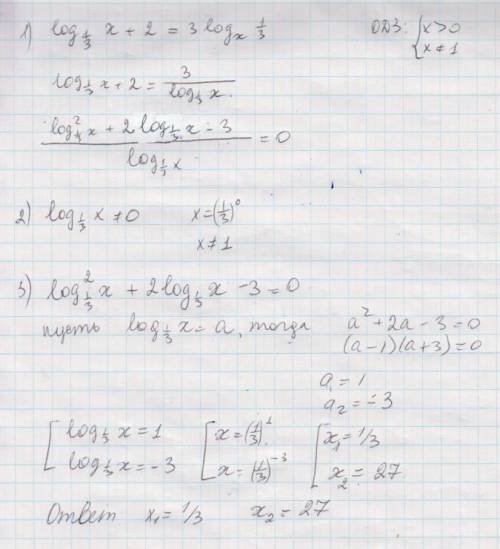 1) log_{1/3} x + 2 = 3 log_x 1/3    ОДЗ: { x > 0
x ≠ 1
log_{1/3} x + 2 = 3 / log_{1/3} x.
(log²_{1/3} x + 2 log_{1/3} x - 3) / log_{1/3} x = 0
2) log_{1/3} x ≠ 0    x = (1/3)⁰
x ≠ 1
3) log²_{1/3} x + 2 log_{1/3} x - 3 = 0
пусть log_{1/3} x = a, тогда    a² + 2a - 3 = 0
(a - 1)(a + 3) = 0
a₁ = 1
a₂ = -3
[ log_{1/3} x = 1    [ x = (1/3)¹    [ x₁ = 1/3
log_{1/3} x = -3    x = (1/3)⁻³    x₂ = 27
Ответ x₁ = 1/3    x₂ = 27